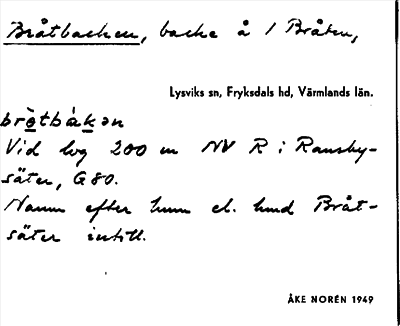 Bråtbacken, backe å 1 Bråten,
Lysviks sn, Fryksdals hd, Värmlands län.
bròtbàkən
Vid väg 200 m NV R i Ransby-
säter, G80.
Namn efter hem el. hmd Bråt-
säter intill.
ÅKE NORÉN 1949